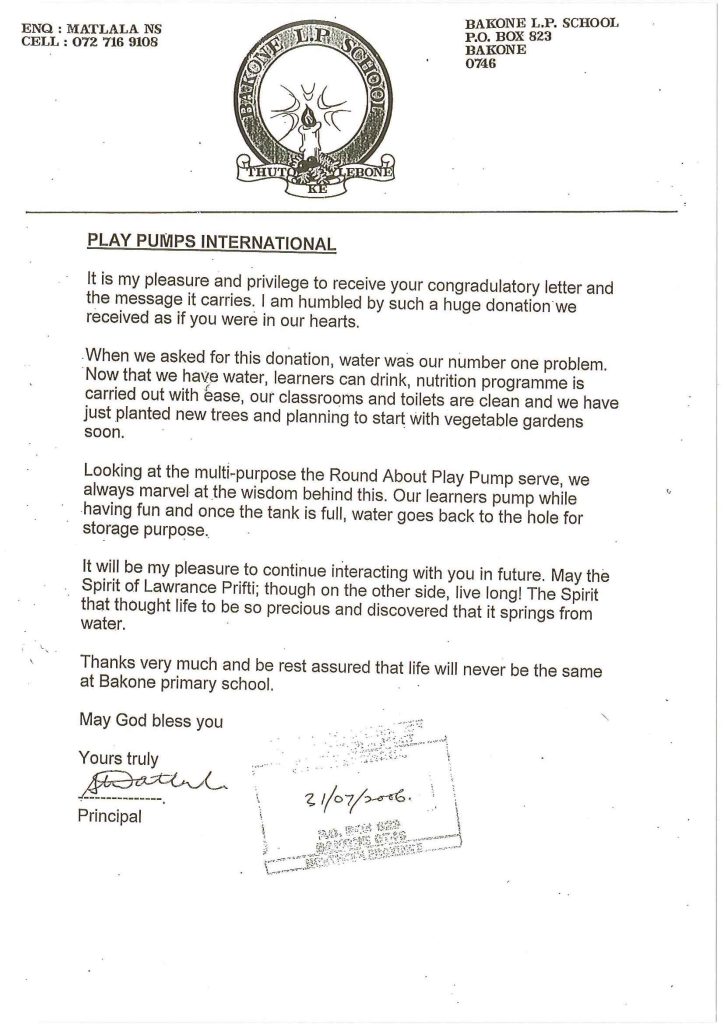 ENQ : MATLALA NS
CELL : 072 716 9108
BAKONE L.P. SCHOOL
P.O. BOX 823
BAKONE
0746
BAKONE L.P SCHOOL
THUTO KE LEBONE
PLAY PUMPS INTERNATIONAL
It is my pleasure and privilege to receive your congradulatory letter and
the message it carries. I am humbled by such a huge donation we
received as if you were in our hearts.
When we asked for this donation, water was our number one problem.
Now that we have water, learners can drink, nutrition programme is
carried out with ease, our classrooms and toilets are clean and we have
just planted new trees and planning to start with vegetable gardens
soon.
Looking at the multi-purpose the Round About Play Pump serve, we
always marvel at the wisdom behind this. Our learners pump while
having fun and once the tank is full, water goes back to the hole for
storage purpose.
It will be my pleasure to continue interacting with you in future. May the
Spirit of Lawrance Prifti; though on the other side, live long! The Spirit
that thought life to be so precious and discovered that it springs from
water.
Thanks very much and be rest assured that life will never be the same
at Bakone primary school.
May God bless you
Yours truly
Principal
31/07/2006.
P.O. BOX 823
BAKONE 0746